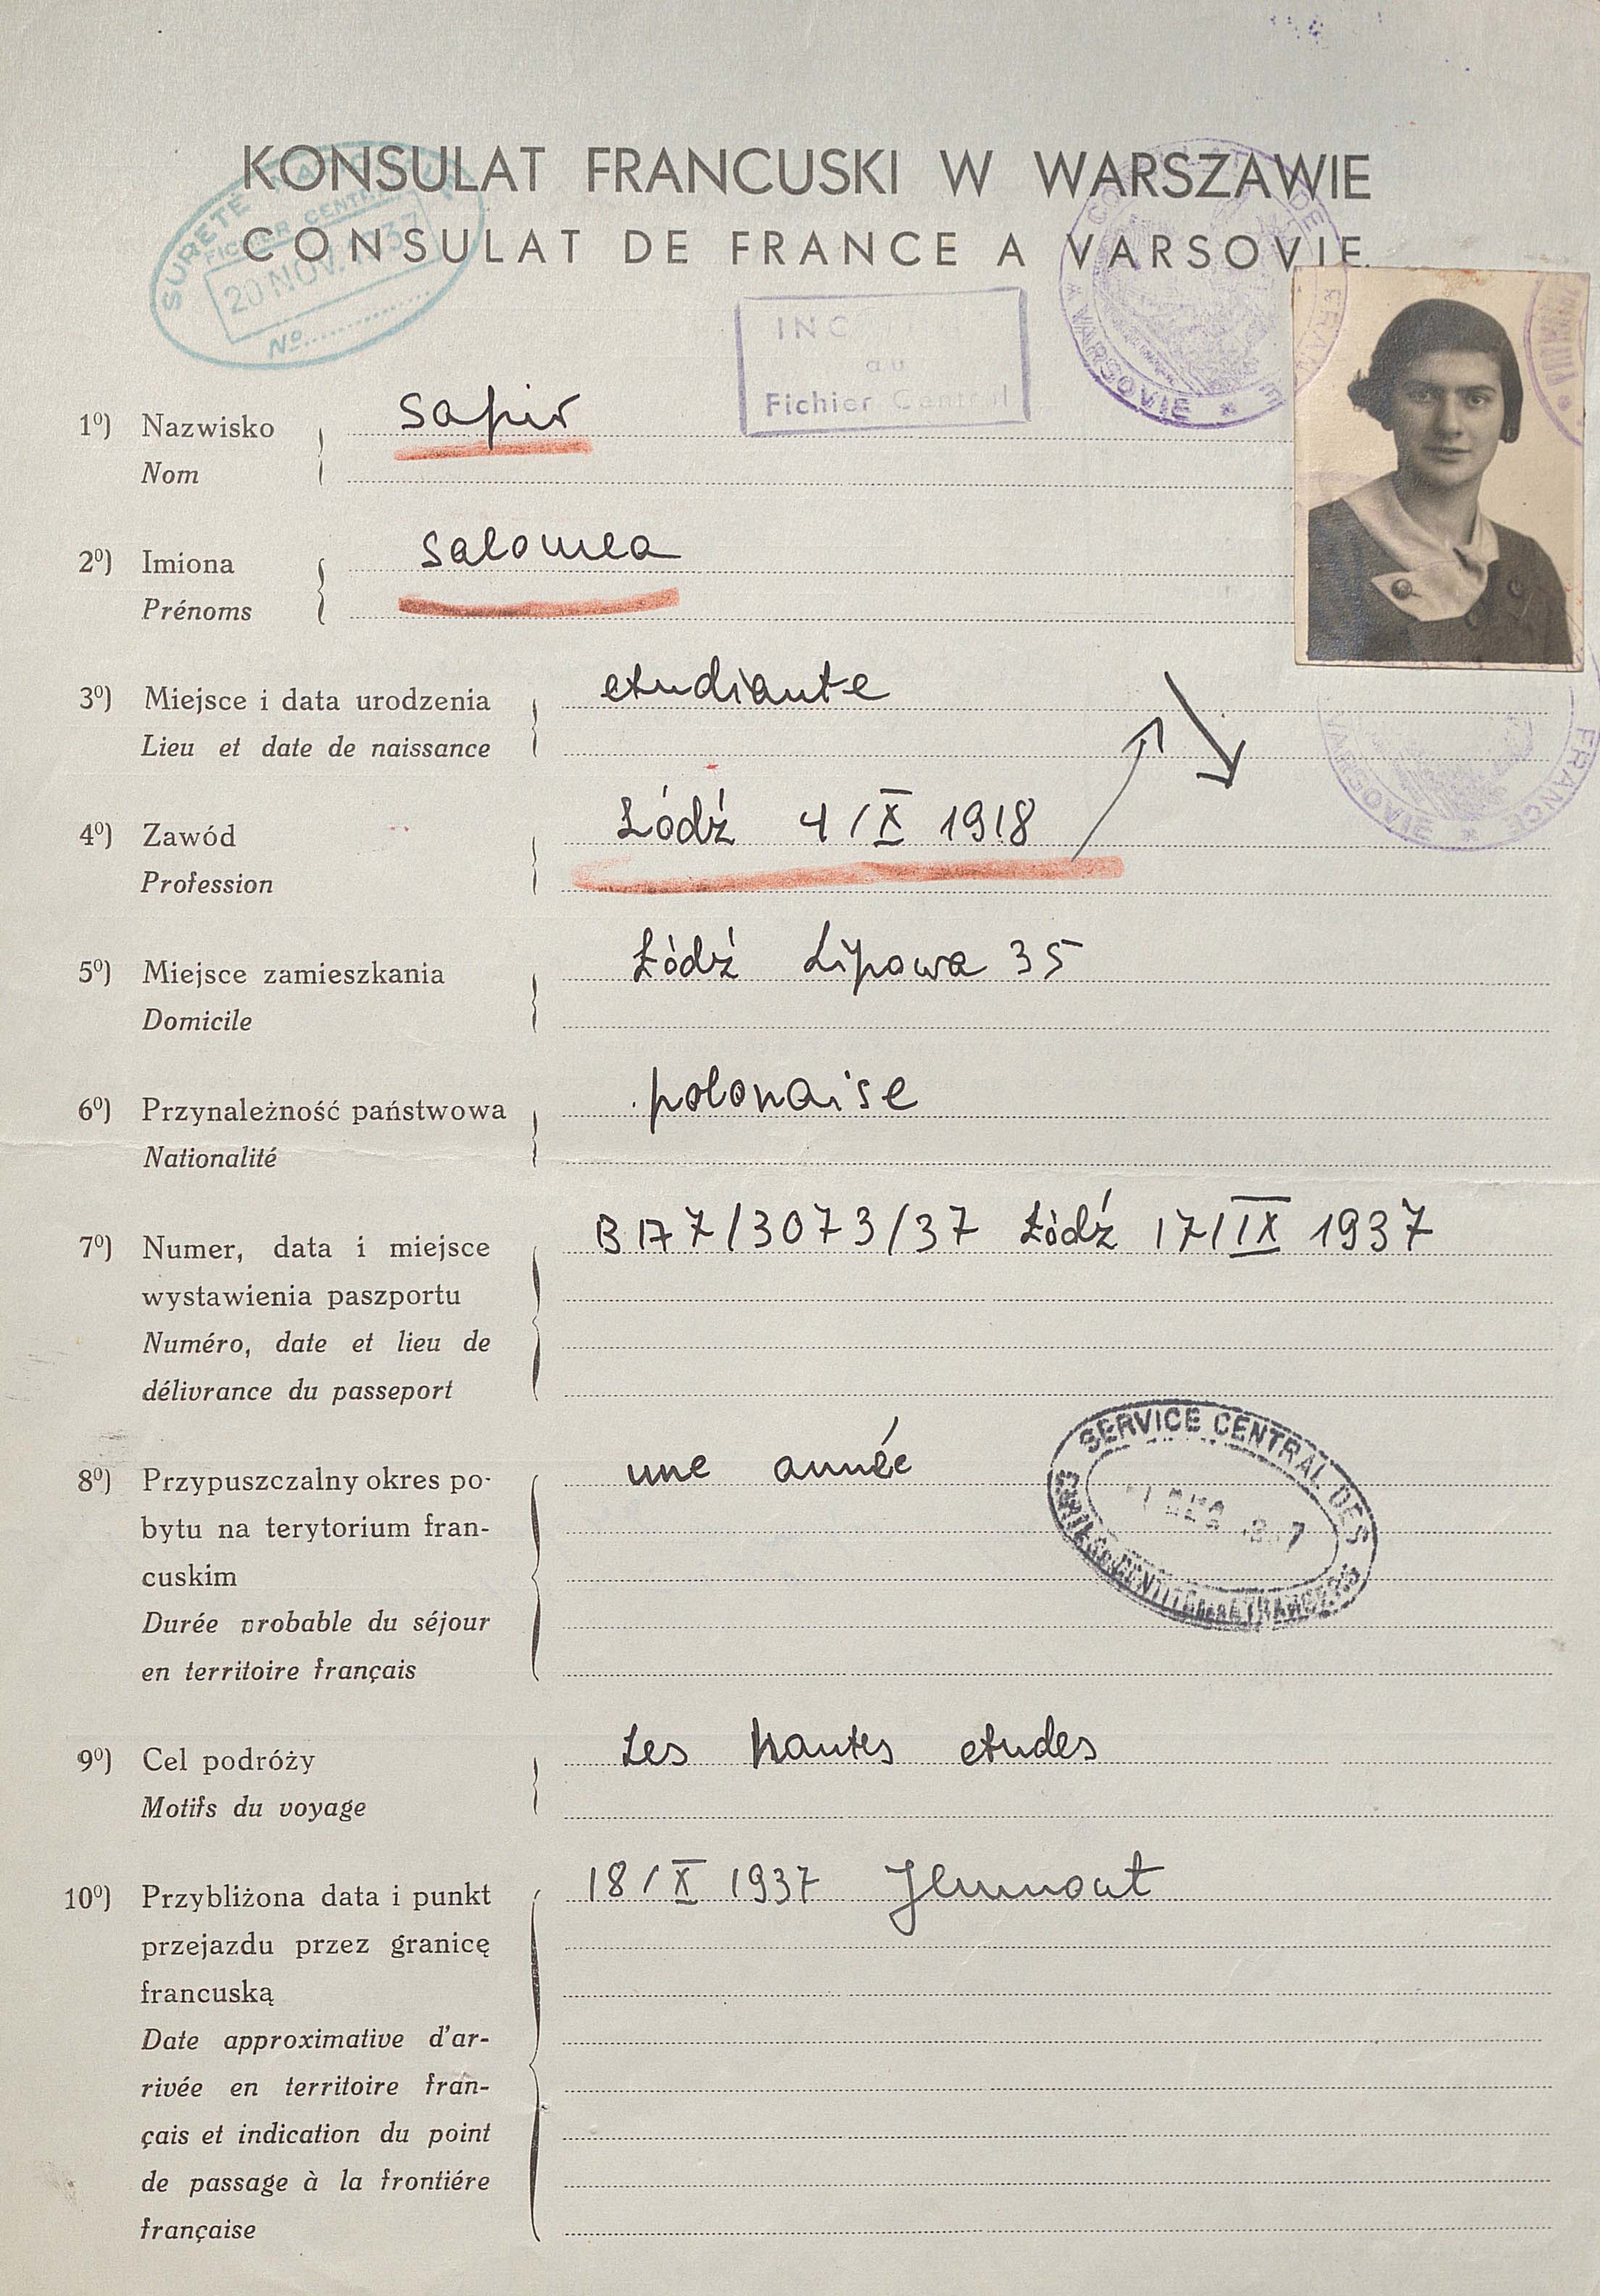 KONSULAT FRANCUSKI W WARSZAWIE
CONSULAT DE FRANCE A VARSOVIE
SURETÉ
FICHIER CENTRAL
20 NOV. 1937
No
au
Fichier Central
CONSULAT DE FRANCE
* VARSOVIE *
1º) Nazwisko
Sapir
Nom
2º) Imiona
Salomea
Prénoms
3º) Miejsce i data urodzenia
etudiante
Lieu et date de naissance
FRANCE
VARSOVIE *
4º) Zawód
Łódź 4/X 1918
Profession
5º) Miejsce zamieszkania
Łódź Lipowa 35
Domicile
6º) Przynależność państwowa
polonaise
Nationalité
7º) Numer, data i miejsce
/3073/37 Łódź 17/IX 1937
wystawienia paszportu
Numéro, date et lieu de
délivrance du passeport
8º) Przypuszczalny okres po-
une année
bytu na terytorium fran-
cuskim
Durée probable du séjour
en territoire français
SERVICE CENTRAL DES
9º) Cel podróży
Les hautes etudes
Motifs du voyage
10º) Przybliżona data i punkt
18/X 1937 Jeumont
przejazdu przez granicę
francuską
Date approximative d'ar-
rivée en territoire fran-
çais et indication du point
de passage à la frontiére
française